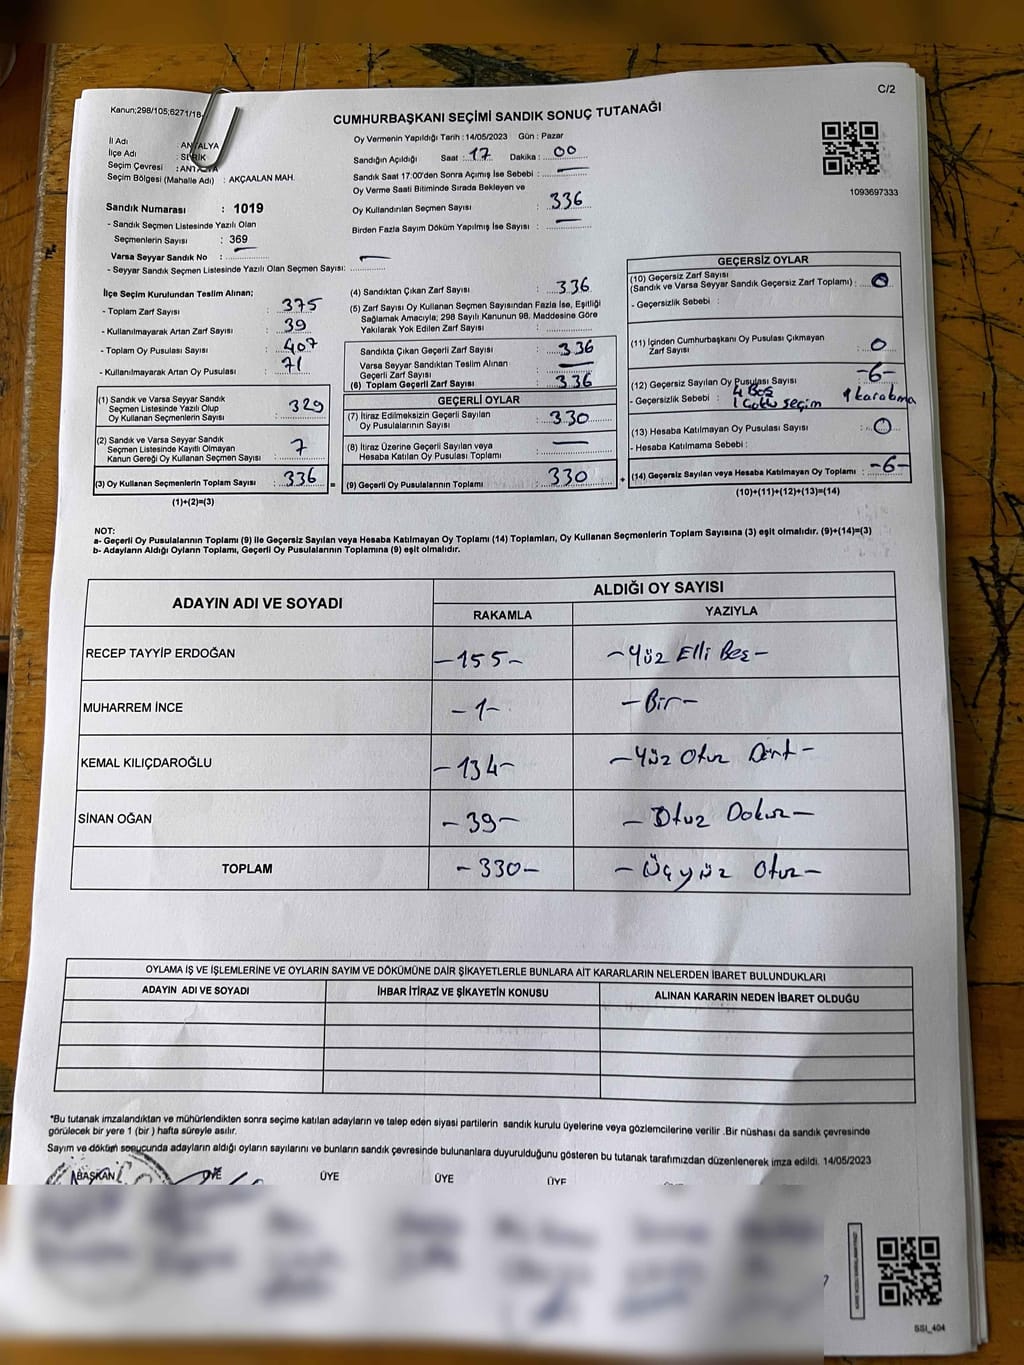 Kanun;298/105;6271/18-
C/2
CUMHURBAŞKANI SEÇİMİ SANDIK SONUÇ TUTANAĞI
Oy Vermenin Yapıldığı Tarih : 14/05/2023 Gün : Pazar
İl Adı : ANTALYA
İlçe Adı : SERİK
Seçim Çevresi : ANTALYA
Seçim Bölgesi (Mahalle Adı) : AKÇAALAN MAH.
Sandığın Açıldığı Saat : 17 Dakika : 00
Sandık Saat 17.00'den Sonra Açımış İse Sebebi : —
Oy Verme Saati Bitiminde Sırada Bekleyen ve
Oy Kullandırılan Seçmen Sayısı : 336
Birden Fazla Sayım Döküm Yapılmış İse Sayısı : —
1093697333
Sandık Numarası : 1019
- Sandık Seçmen Listesinde Yazılı Olan
Seçmenlerin Sayısı : 369
Varsa Seyyar Sandık No : —
- Seyyar Sandık Seçmen Listesinde Yazılı Olan Seçmen Sayısı: —
İlçe Seçim Kurulundan Teslim Alınan;
- Toplam Zarf Sayısı : 375
- Kullanılmayarak Artan Zarf Sayısı : 39
- Toplam Oy Pusulası Sayısı : 407
- Kullanılmayarak Artan Oy Pusulası : 71
(1) Sandık ve Varsa Seyyar Sandık
Seçmen Listesinde Yazılı Olup
Oy Kullanan Seçmenlerin Sayısı : 329
(2) Sandık ve Varsa Seyyar Sandık
Seçmen Listesinde Kayıtlı Olmayan
Kanun Gereği Oy Kullanan Seçmen Sayısı : 7
(3) Oy Kullanan Seçmenlerin Toplam Sayısı : 336
(1)+(2)=(3)
(4) Sandıktan Çıkan Zarf Sayısı : 336
(5) Zarf Sayısı Oy Kullanan Seçmen Sayısından Fazla İse, Eşitliği
Sağlamak Amacıyla; 298 Sayılı Kanunun 98. Maddesine Göre
Yakılarak Yok Edilen Zarf Sayısı :
Sandıkta Çıkan Geçerli Zarf Sayısı : 336
Varsa Seyyar Sandıktan Teslim Alınan
Geçerli Zarf Sayısı : —
(6) Toplam Geçerli Zarf Sayısı : 336
GEÇERLİ OYLAR
(7) İtiraz Edilmeksizin Geçerli Sayılan
Oy Pusulalarının Sayısı : 330
(8) İtiraz Üzerine Geçerli Sayılan veya
Hesaba Katılan Oy Pusulası Toplamı : —
= (9) Geçerli Oy Pusulalarının Toplamı : 330 +
GEÇERSİZ OYLAR
(10) Geçersiz Zarf Sayısı
(Sandık ve Varsa Seyyar Sandık Geçersiz Zarf Toplamı) : 0
- Geçersizlik Sebebi :
(11) İçinden Cumhurbaşkanı Oy Pusulası Çıkmayan
Zarf Sayısı : 0
(12) Geçersiz Sayılan Oy Pusulası Sayısı : -6-
- Geçersizlik Sebebi : 4 Boş
1 Çoklu seçim 1 karalama
(13) Hesaba Katılmayan Oy Pusulası Sayısı : 0
- Hesaba Katılmama Sebebi :
(14) Geçersiz Sayılan veya Hesaba Katılmayan Oy Toplamı : -6-
(10)+(11)+(12)+(13)=(14)
NOT:
a- Geçerli Oy Pusulalarının Toplamı (9) ile Geçersiz Sayılan veya Hesaba Katılmayan Oy Toplamı (14) Toplamları, Oy Kullanan Seçmenlerin Toplam Sayısına (3) eşit olmalıdır. (9)+(14)=(3)
b- Adayların Aldığı Oyların Toplamı, Geçerli Oy Pusulalarının Toplamına (9) eşit olmalıdır.
ADAYIN ADI VE SOYADI
ALDIĞI OY SAYISI
RAKAMLA YAZIYLA
RECEP TAYYİP ERDOĞAN -155- -Yüz Elli Beş-
MUHARREM İNCE -1- -Bir-
KEMAL KILIÇDAROĞLU -134- -Yüz Otuz Dört-
SİNAN OĞAN -39- -Otuz Dokuz-
TOPLAM -330- -Üçyüz Otuz-
OYLAMA İŞ VE İŞLEMLERİNE VE OYLARIN SAYIM VE DÖKÜMÜNE DAİR ŞİKAYETLERLE BUNLARA AİT KARARLARIN NELERDEN İBARET BULUNDUKLARI
ADAYIN ADI VE SOYADI İHBAR İTİRAZ VE ŞİKAYETİN KONUSU ALINAN KARARIN NEDEN İBARET OLDUĞU
*Bu tutanak imzalandıktan ve mühürlendikten sonra seçime katılan adayların ve talep eden siyasi partilerin sandık kurulu üyelerine veya gözlemcilerine verilir .Bir nüshası da sandık çevresinde
görülecek bir yere 1 (bir ) hafta süreyle asılır.
Sayım ve döküm sonucunda adayların aldığı oyların sayılarını ve bunların sandık çevresinde bulunanlara duyurulduğunu gösteren bu tutanak tarafımızdan düzenlenerek imza edildi. 14/05/2023
BAŞKAN ÜYE ÜYE ÜYE ÜYE
SSI_404